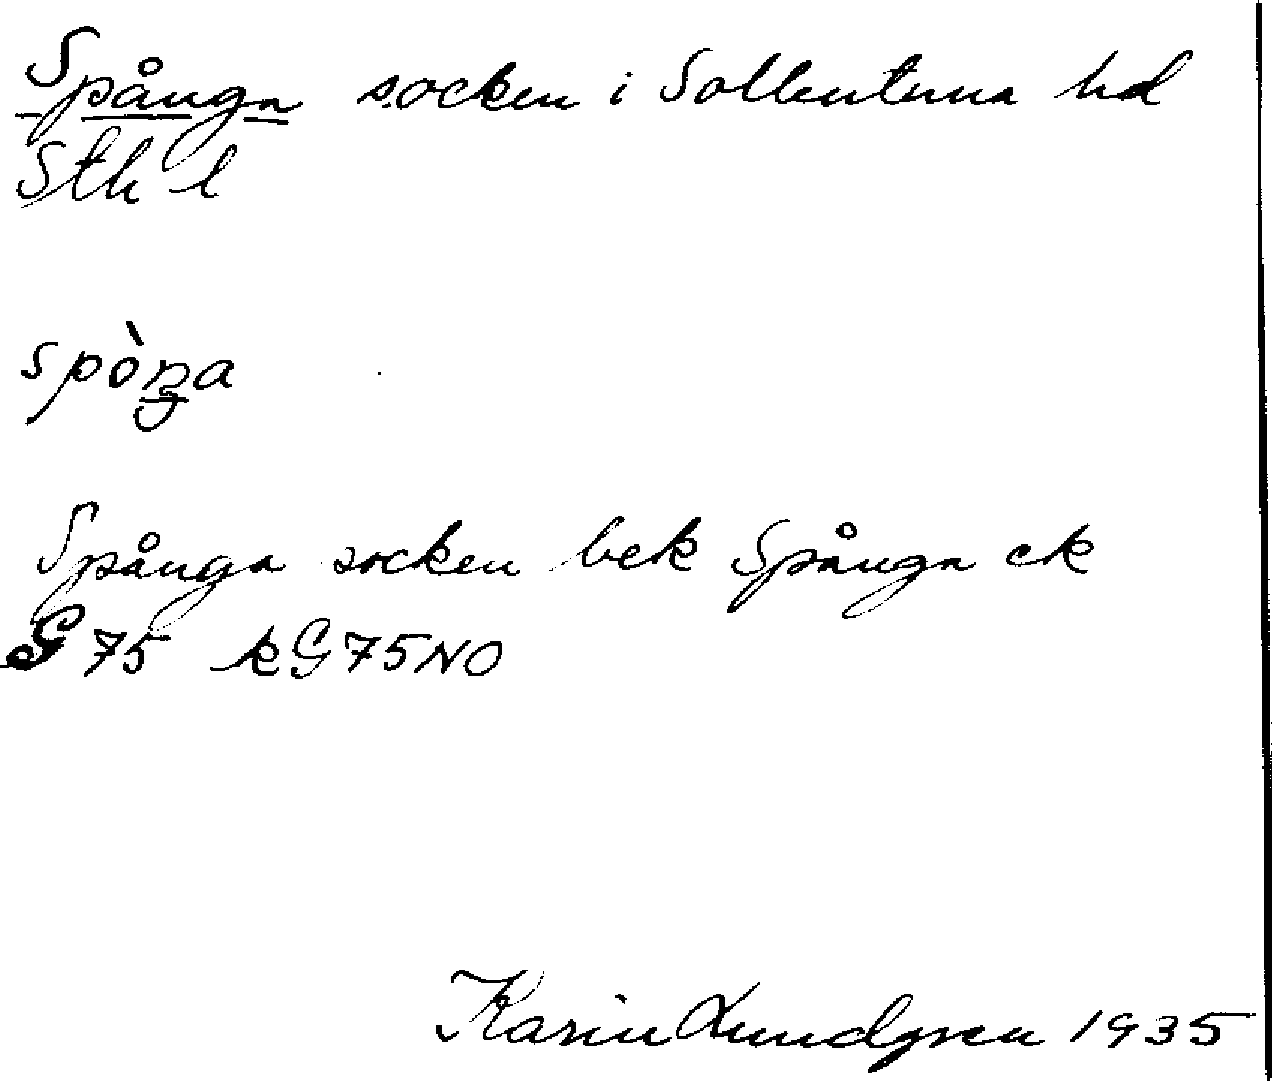 Spånga socken i Sollentuna hd
Sth l
spòŋa
Spånga socken bek Spånga ek
G 75 kG75NO
Karin Lundgren 1935